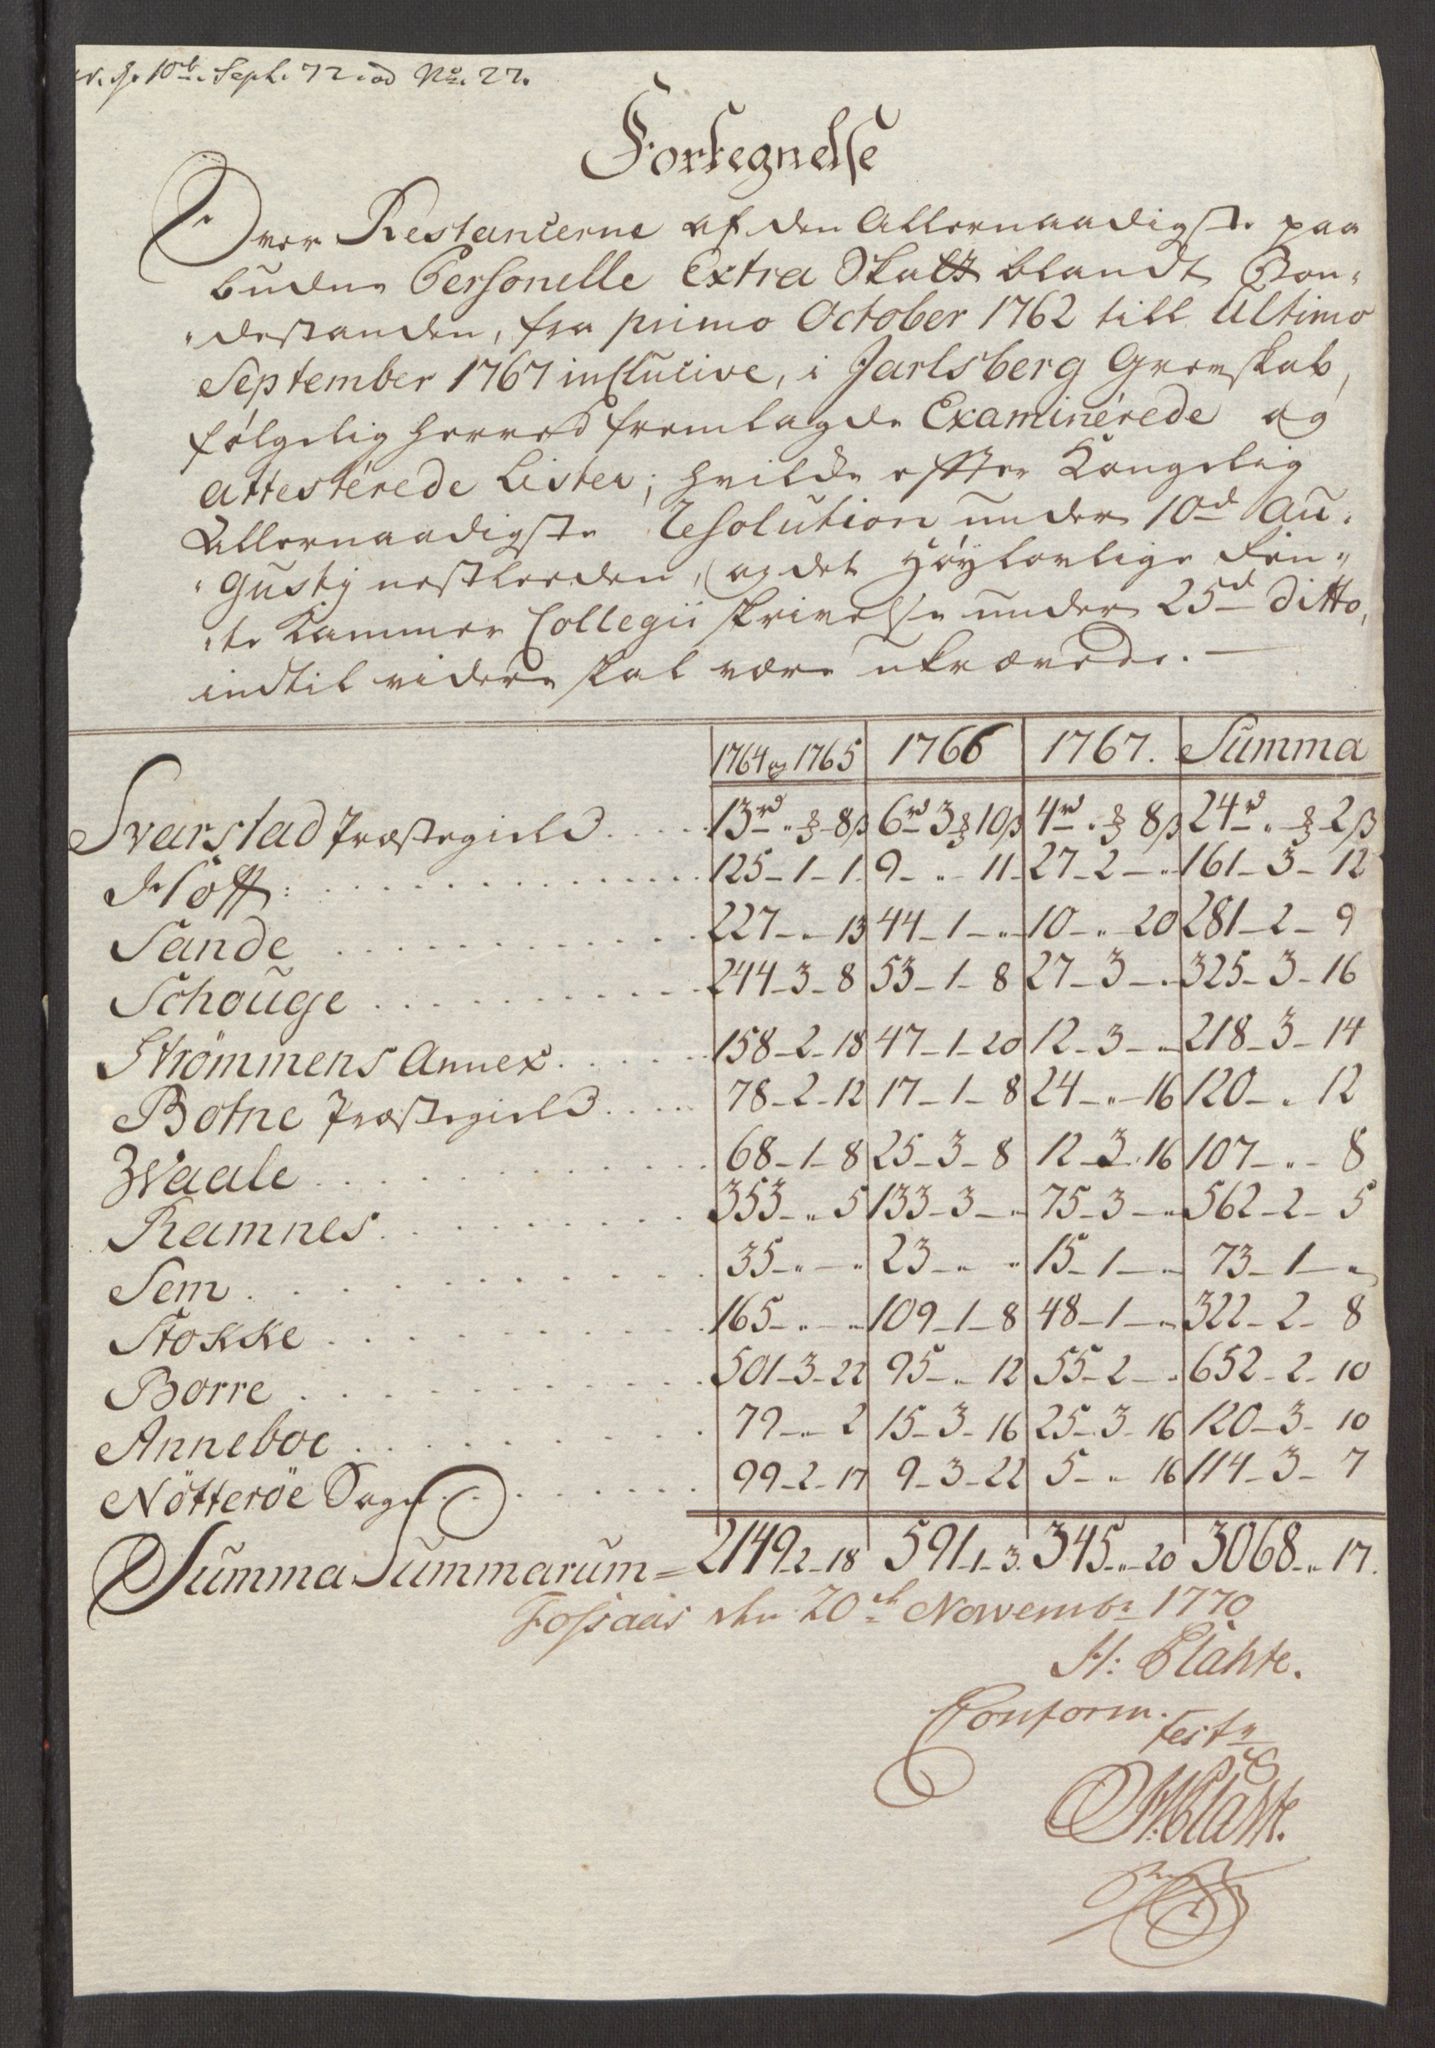 10de. Sept. 72 ad No. 22.
Fortegnelse
Over Restancerne af den Allernaadigste paa
budne Personelle Extra Skatt blandt Bon-
destanden, fra primo October 1762 till Ultimo
September 1767 inclucive, i Jarlsberg Grevskab,
følgelig herved fremlagde Examinérede og
attestérede Lister; hvilke efter Kongelig
Allernaadigste Resolution under 10d Au-
gusty nestleeden, og det Høylovlige Ren-
te Kammer Collegii skrivelse under 25d ditto,
indtil videre skal være ukrævede. —
1764 og 1765 1766 1767. Summa
Svarstad Præstegield . . . . 13rd " ? 8β 6rd 3? 10β 4rd " ? 8β 24rd " ? 2β
Hoff: . . . . 125 - 1 - 1 9 - " - 11 27 - 2 - " 161 - 3 - 12
Sande . . . . 227 - " - 13 44 - 1 - " 10 - " - 20 281 - 2 - 9
Schouge . . . . 244 - 3 - 8 53 - 1 - 8 27 - 3 - " 325 - 3 - 16
Strømmens Annex . . . . 158 - 2 - 18 47 - 1 - 20 12 - 3 - " 218 - 3 - 14
Botne Præstegield . . . . 78 - 2 - 12 17 - 1 - 8 24 - " - 16 120 - " - 12
Waale . . . . 68 - 1 - 8 25 - 3 - 8 12 - 3 - 16 107 - " - 8
Ramnes . . . . 353 - " - 5 133 - 3 - " 75 - 3 - " 562 - 2 - 5
Sem . . . . 35 - " - " 23 - " - " 15 - 1 - " 73 - 1 - "
Stokke . . . . 165 - " - " 109 - 1 - 8 48 - 1 - " 322 - 2 - 8
Borre . . . . 501 - 3 - 22 95 - " - 12 55 - 2 - " 652 - 2 - 10
Anneboe . . . . 79 - " - 2 15 - 3 - 16 25 - 3 - 16 120 - 3 - 10
Nötteröe Sogn . . . . 99 - 2 - 17 9 - 3 - 22 5 - " - 16 114 - 3 - 7
Summa Summarum = 2149 - 2 - 18 591 - 1 - 3 345 - " - 20 3068 - " - 17.
Fossaas den 20de Novembr 1770
H: Plahte.
Conform. Test
H: Plahte.